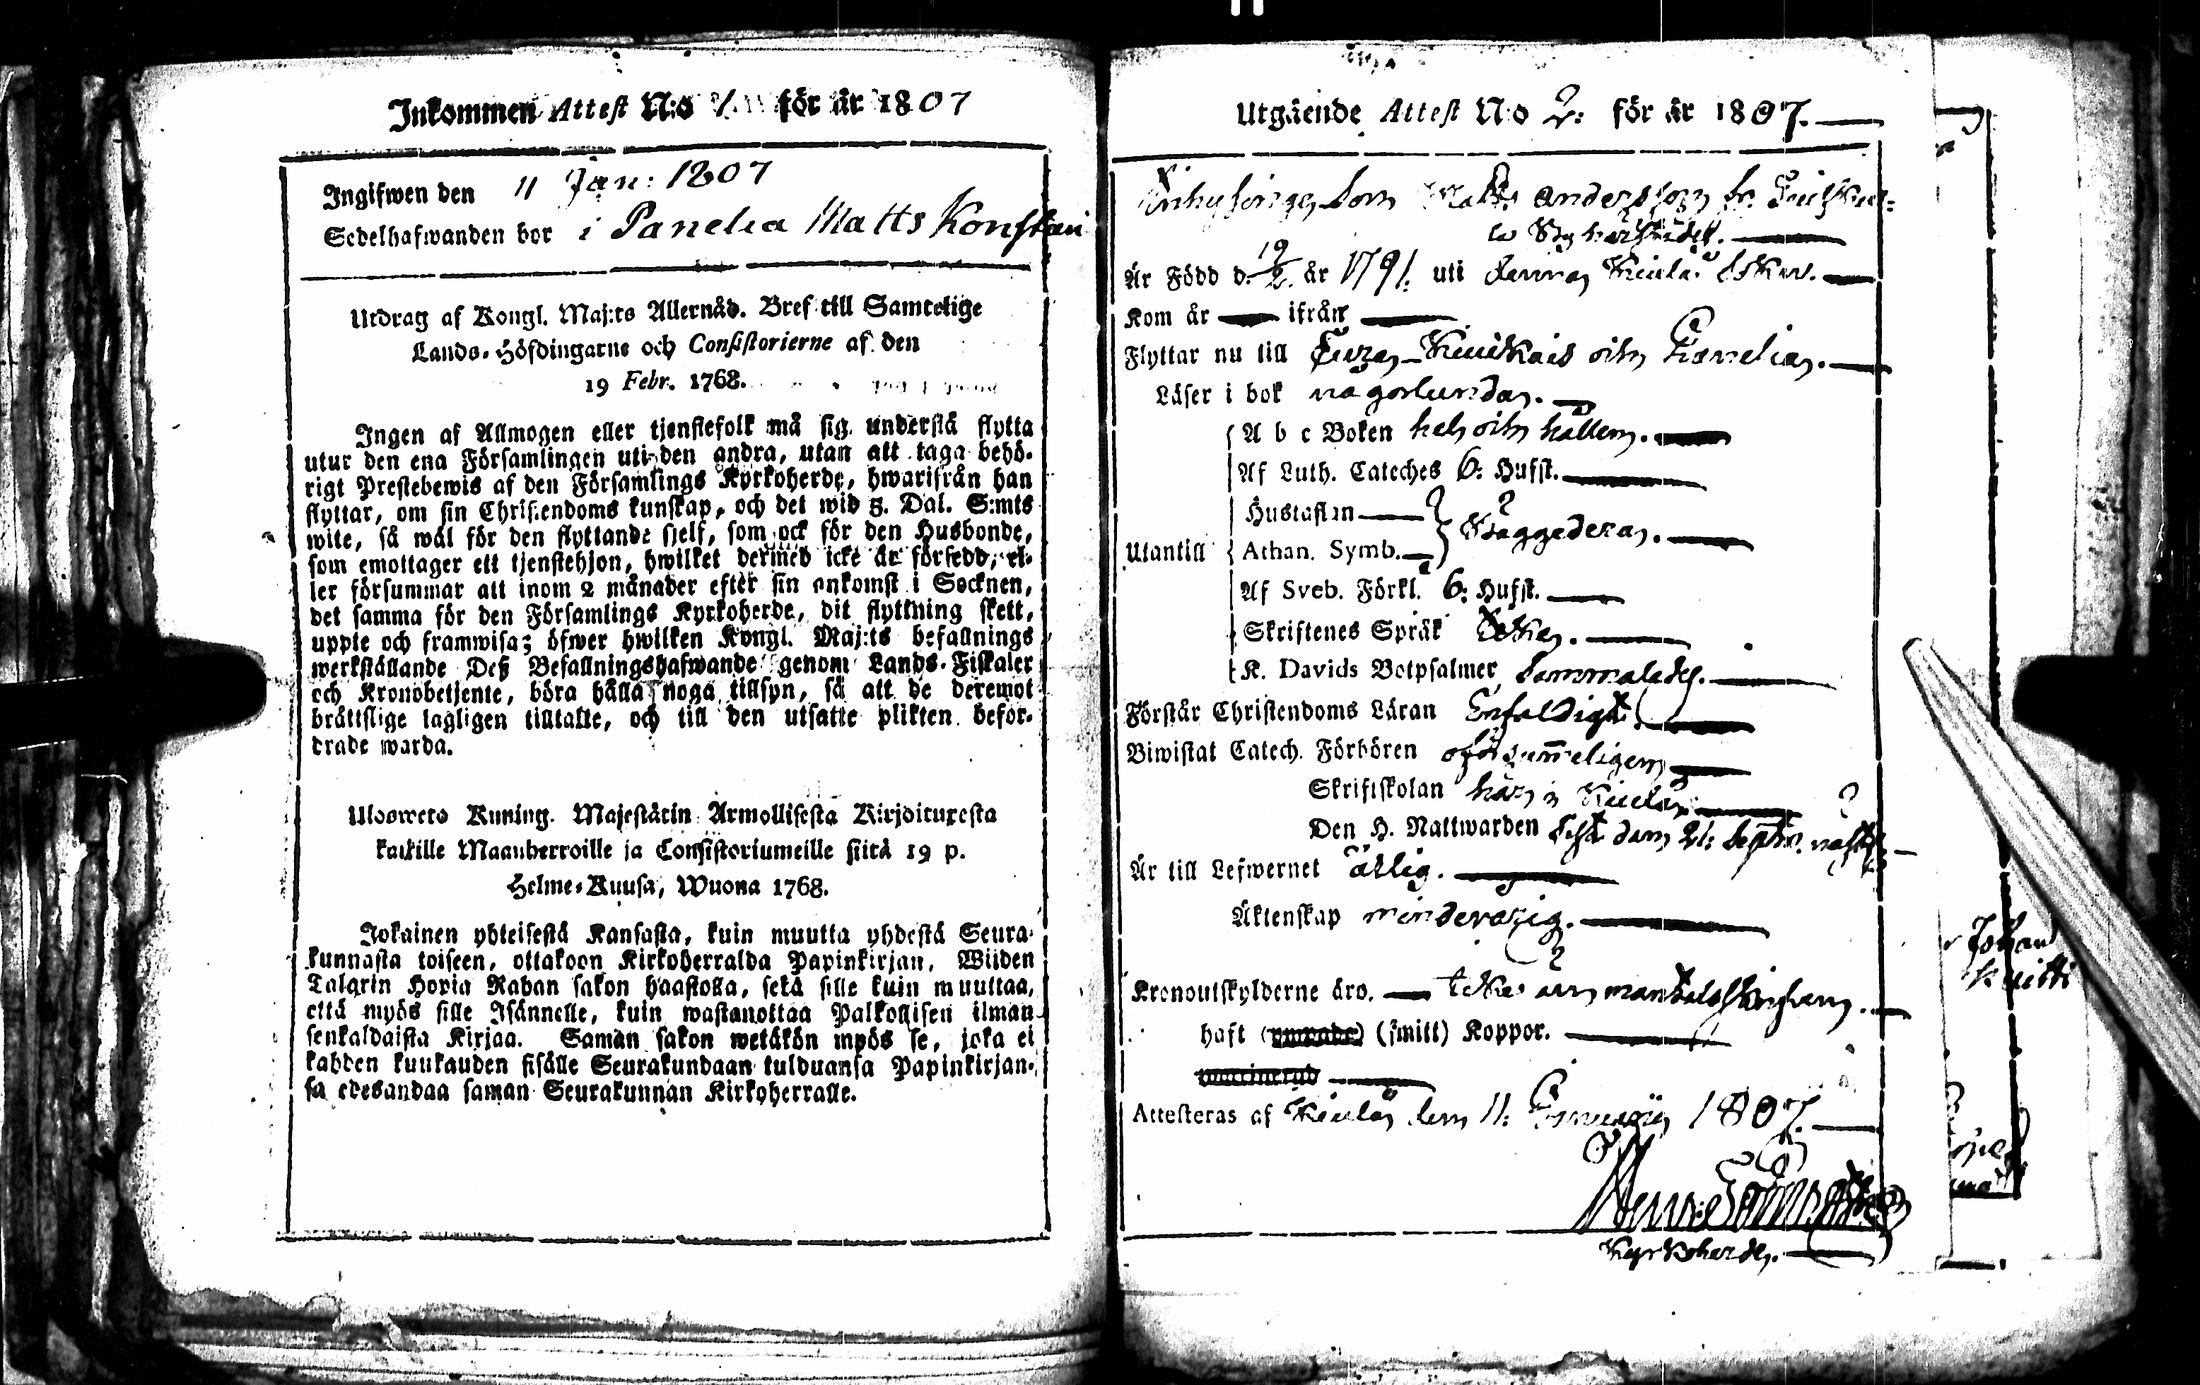 Inkommen Attest N:o 1. för år 1807
Ingifwen den 11 Jan: 1807
Sedelhafwanden bor i Panelia Matts Konstari
Utdrag af Kongl. Maj:ts Allernåd. Bref till Samtelige
Lands-Höfdingarne och Consistorierne af den
19 Febr. 1768.
Ingen af Allmogen eller tjenstefolk må sig understå flytta
utur den ena Församlingen uti den andra, utan att taga behö-
rigt Prestebewis af den Församlings Kyrkoherde, hwarifrån han
flyttar, om sin Christendoms kunskap, och det wid 5. Dal. S:mts
wite, så wäl för den flyttande sjelf, som ock för den Husbonde,
som emottager ett tjenstehjon, hwilket dermed icke är försedd, el-
ler försummar att inom 2 månader efter sin ankomst i Socknen,
det samma för den Församlings Kyrkoherde, dit flyttning skett,
uppte och framwisa; öfwer hwilken Kongl. Maj:ts befallnings
werkställande Deß Befallningshafwande genom Lands-Fiskaler
och Kronobetjente, böra hålla noga tillsyn, så att de deremot
bråttslige lagligen tilltalte, och till den utsatte plikten befor-
drade warda.
Ulosweto Kuning. Majestätin Armollisesta Kirjoituxesta
kaikille Maanherroille ja Consistoriumeille siitä 19 p.
Helme-Kuusa, Wuona 1768.
Jokainen yhteisestä Kansasta, kuin muutta yhdestä Seura-
kunnasta toiseen, ottakoon Kirkoherralda Papinkirjan, Wiiden
Talarin Hopia Rahan sakon haastolla, sekä sille kuin muuttaa,
että myös sille Isännelle, kuin wastanottaa Palkollisen ilman
senkaldaista Kirjaa. Saman sakon wetäkön myös se, joka ei
kahden kuukauden sisälle Seurakundaan tulduansa Papinkirjan-
sa edesandaa saman Seurakunnan Kirkoherralle.
Utgäende Attest N:o 2: för år 1807.
Matts Andersson fr.
Är Född d. 19/2. år 1791. uti denna Kiulå Sokn.
Kom år ifrån
Flyttar nu till Eura-Kiukais och Panelia.
Läser i bok någorlunda.
A b c Boken hel och hållen.
Af Luth. Cateches 6: Hufst.
Hustaflan
Utantill Athan. Symb. Baggedera.
Af Sveb. Förkl. 6: Hufst.
Skriftenes Språk
K. Davids Botpsalmer Sammaledes.
Förstår Christendoms Läran Enfaldigt.
Biwistat Catech. Förhören oförsummeligen
Skriftskolan här i Kiulå
Den H. Nattwarden sist den 21: Septbr.
Är till Lefwernet ärlig.
Äktenskap minderårig.
Kronoutskylderne äro.
haft (smitt) Koppor.
Attesteras af Kiulå den 11: Januarii 1807.
Kyrkoherde.
Johan